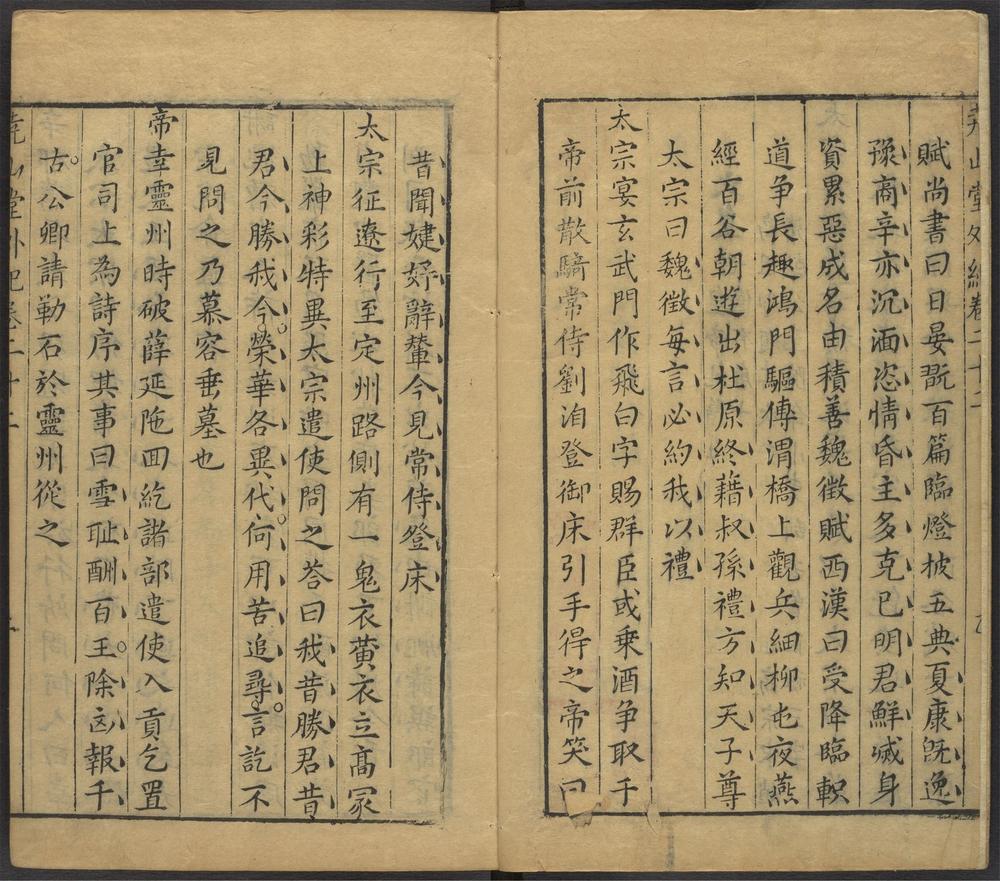 堯山堂外紀卷二十二
賦尚書曰日晏翫百篇臨燈披五典夏康旣逸
豫商辛亦沉湎恣情昏主多克已明君鮮滅身
資累惡成名由積善魏徵賦西漢曰受降臨軹
道爭長趣鴻門驅傳渭橋上觀兵細柳屯夜燕
經百谷朝遊出杜原終藉叔孫禮方知天子尊
太宗曰魏徵每言必約我以禮
太宗宴玄武門作飛白字賜群臣或乗酒爭取于
帝前散騎常侍劉洎登御床引手得之帝笑曰
昔聞婕妤辭輦今見常侍登床
太宗征遼行至定州路側有一鬼衣黃衣立髙冢
上神彩特異太宗遣使問之荅曰我昔勝君昔
君今勝我今榮華各異代何用苦追尋言訖不
見問之乃慕容垂墓也
帝幸靈州時破薛延陁囬紇諸部遣使入貢乞置
官司上為詩序其事曰雪耻酬百王除凶報千
古公卿請勒石於靈州從之
堯山堂外紀卷二十二